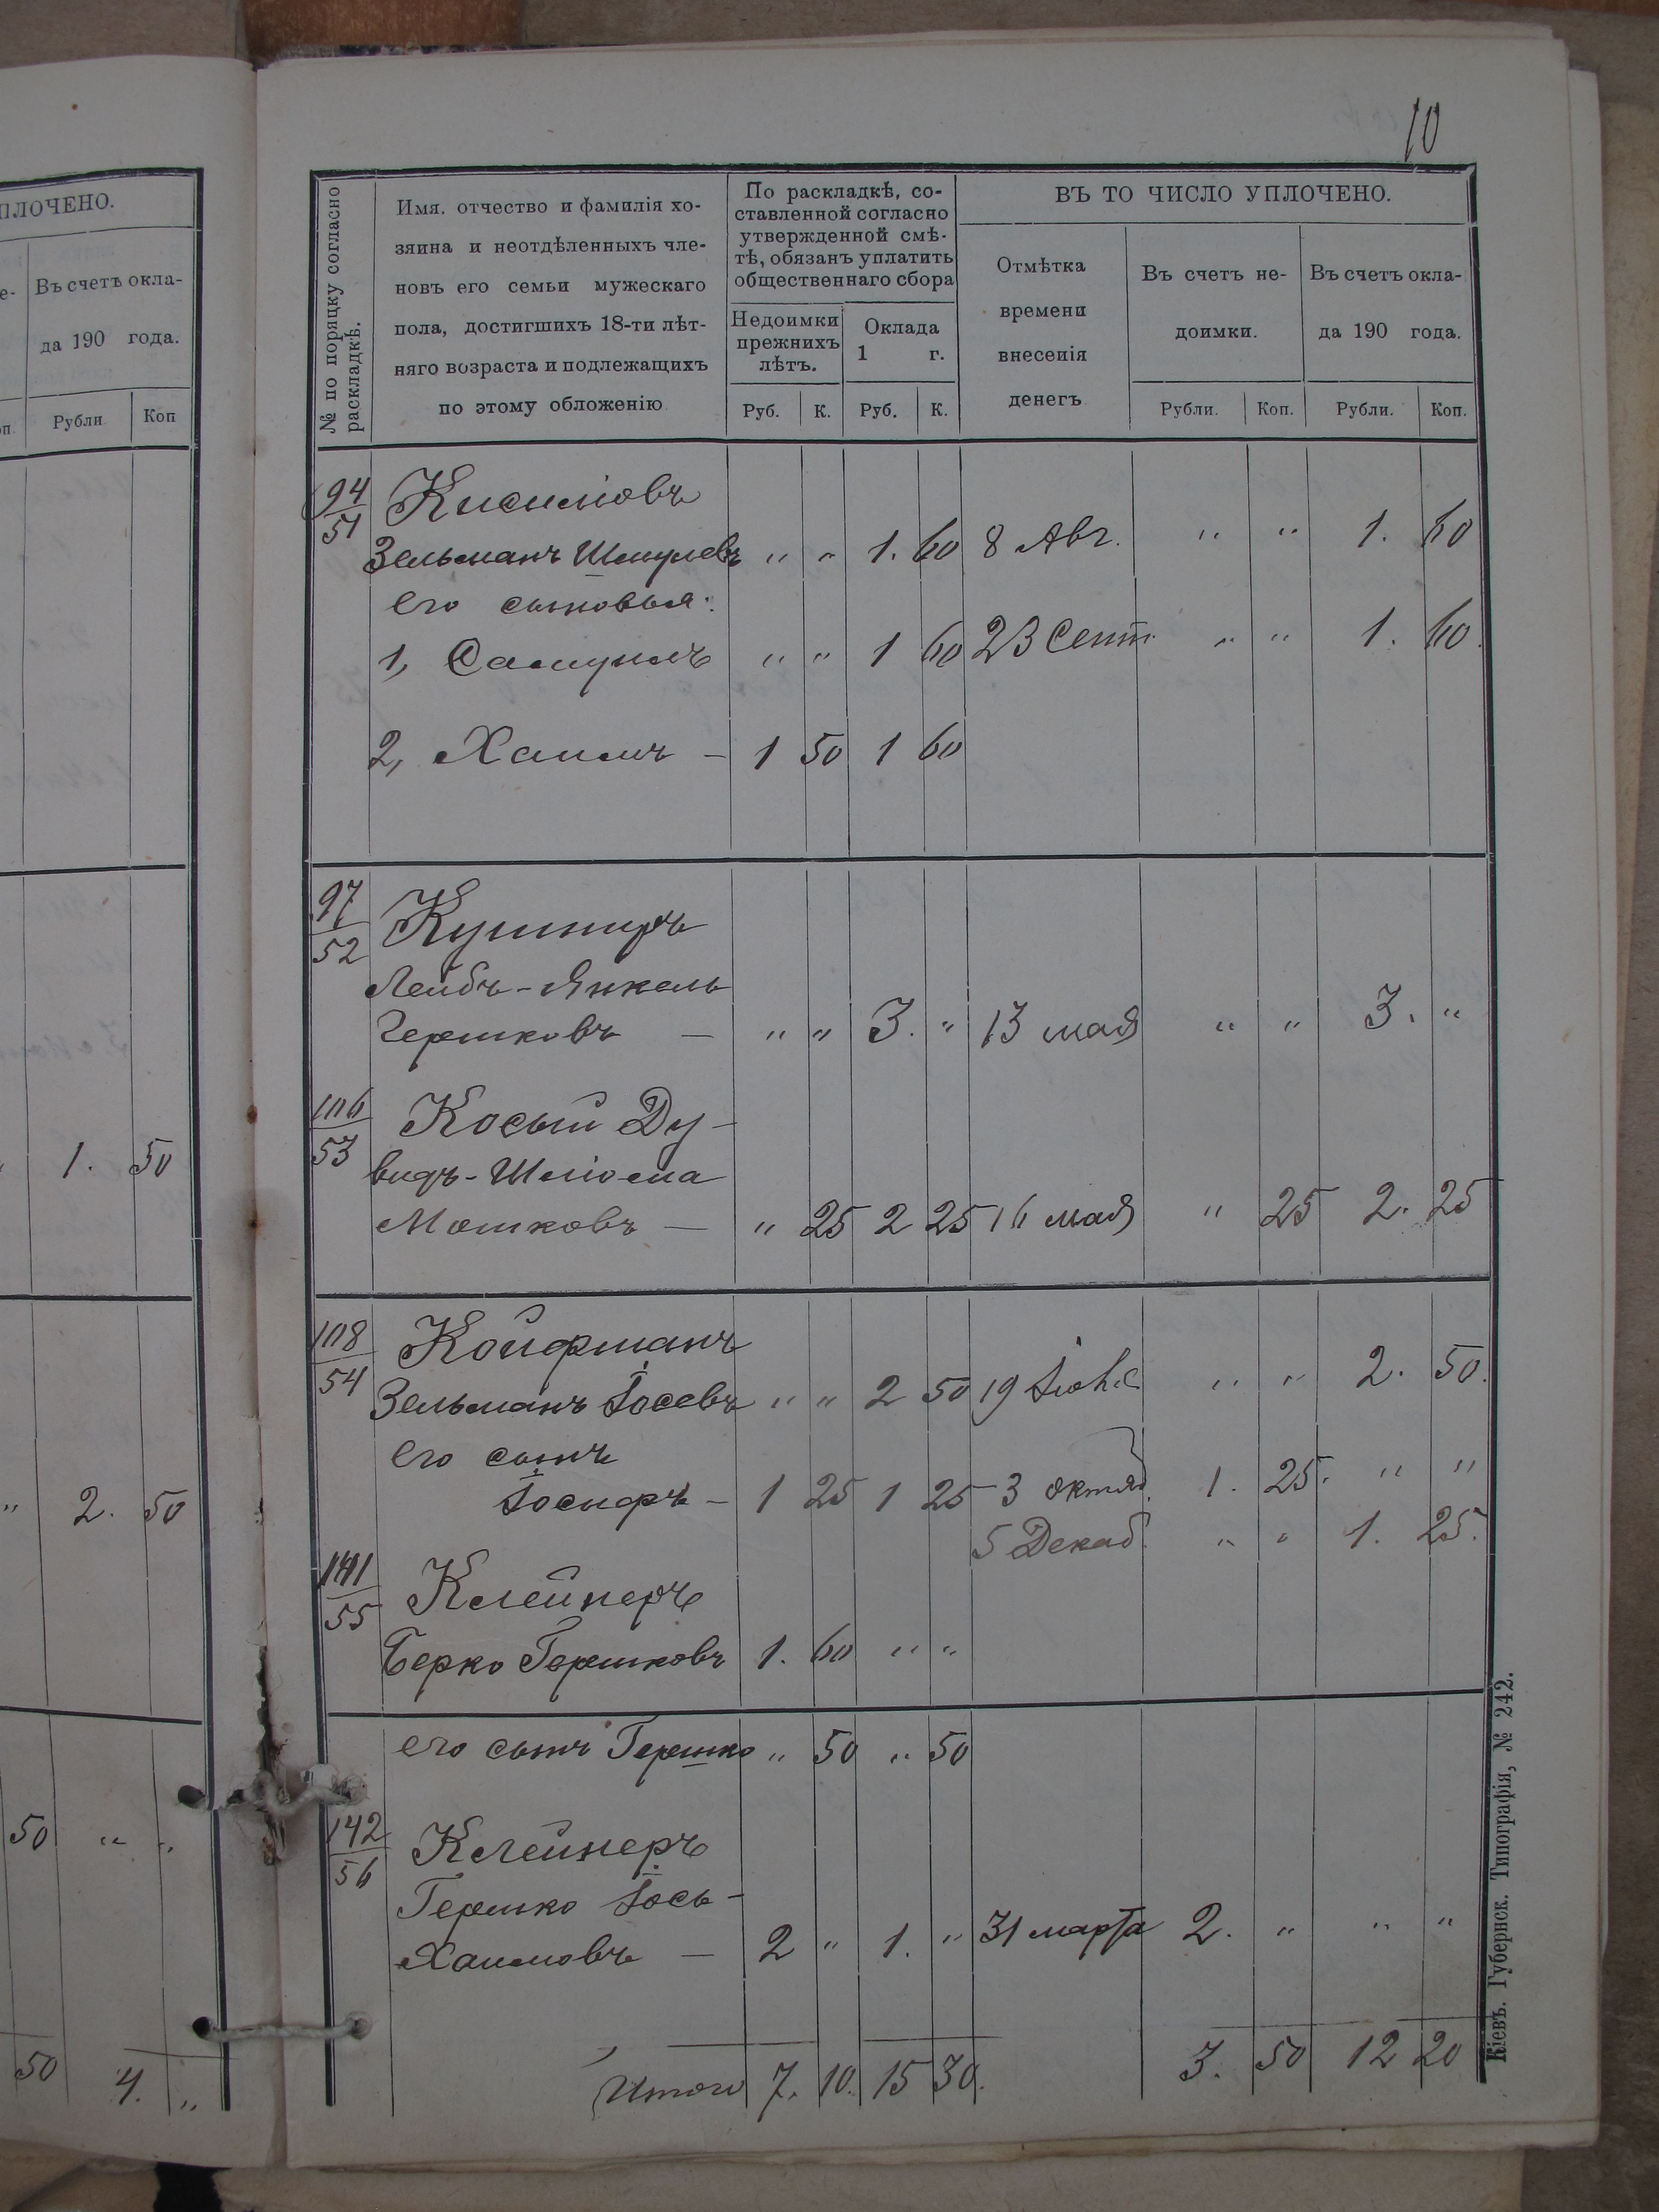 ПЛОЧЕНО.
Въ счетъ окла-
да 190 года.
Рубли
Коп
1. 50
" 2. 50
50 " "
50 4. "
10
№ по порядку согласно
раскладкѣ.
Имя, отчество и фамилія хо-
зяина и неотдѣленныхъ чле-
новъ его семьи мужескаго
пола, достигшихъ 18-ти лѣт-
няго возраста и подлежащихъ
по этому обложенію
По раскладкѣ, со-
ставленной согласно
утвержденной смѣ-
тѣ, обязанъ уплатить
общественнаго сбора
Недоимки
прежнихъ
лѣтъ.
Оклада
1 г.
Руб. К. Руб. К.
ВЪ ТО ЧИСЛО УПЛОЧЕНО.
Отмѣтка
времени
внесенія
денегъ
Въ счетъ не-
доимки.
Рубли. Коп.
Въ счетъ окла-
да 190 года.
Рубли. Коп.
94/51 Кисилювъ
Зельманъ Шмулевъ " " 1. 60 8 Авг. " " 1. 60
его сыновья:
1, Самуилъ " " 1 60 23 Сент. " " 1. 60.
2, Хаимъ - 1 50 1 60
97/52 Кушниръ
Лейбъ-Янкель
Гершковъ - " " 3. " 13 мая " " 3. "
106/53 Косый Ду-
видъ-Шліома
Мошковъ - " 25 2 25 16 мая " 25 2. 25
108/54 Койфманъ
Зельманъ Іосевъ " " 2 50 19 Іюня " " 2. 50.
его сынъ
Іосифъ - 1 25 1 25 3 октяб. 1. 25. " "
5 Декаб. " " 1. 25.
141/55 Клейнеръ
Берко Гершковъ 1. 60 " "
его сынъ Гершко " 50 " 50
142/56 Клейнеръ
Гершко Іось-
Хаимовъ - 2 " 1. " 31 марта 2. " " "
Итого 7. 10. 15 30. 3. 50 12 20
Кіевъ. Губернск. Типографія, № 242.